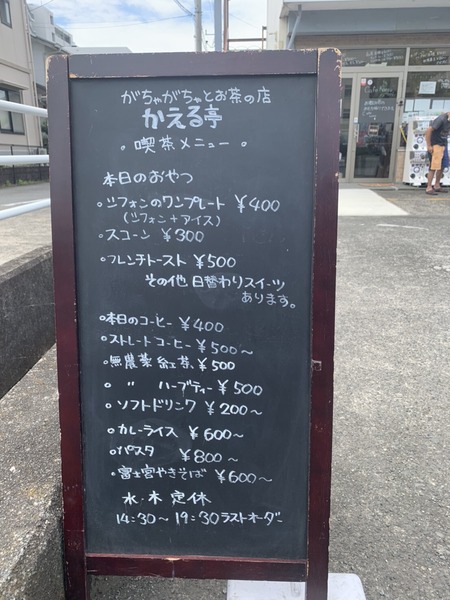 がちゃがちゃとお茶の店
かえる亭
。喫茶メニュー。
本日のおやつ
。シフォンのワンプレート ¥400
(シフォン+アイス)
。スコーン ¥300
。フレンチトースト ¥500
その他 日替わりスイーツ
あります。
。本日のコーヒー ¥400
。ストレートコーヒー ¥500~
。無農薬 紅茶 ¥500
。 〃 ハーブティー ¥500
。ソフトドリンク ¥200~
。カレーライス ¥600~
。パスタ ¥800~
。富士宮やきそば ¥600~
水・木 定休
14:30~19:30ラストオーダー